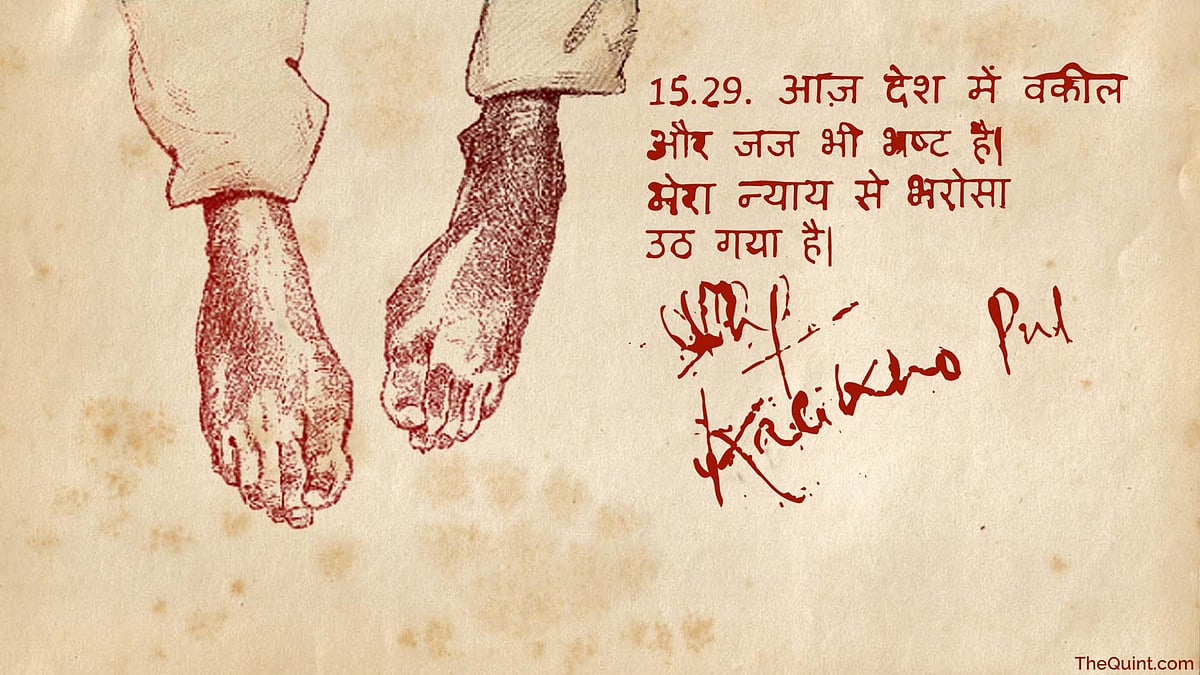 15.29. आज़ देश में वकील
और जज भी भ्रष्ट है|
मेरा न्याय से भरोसा
उठ गया है|
Kalikho Pul
TheQuint.com